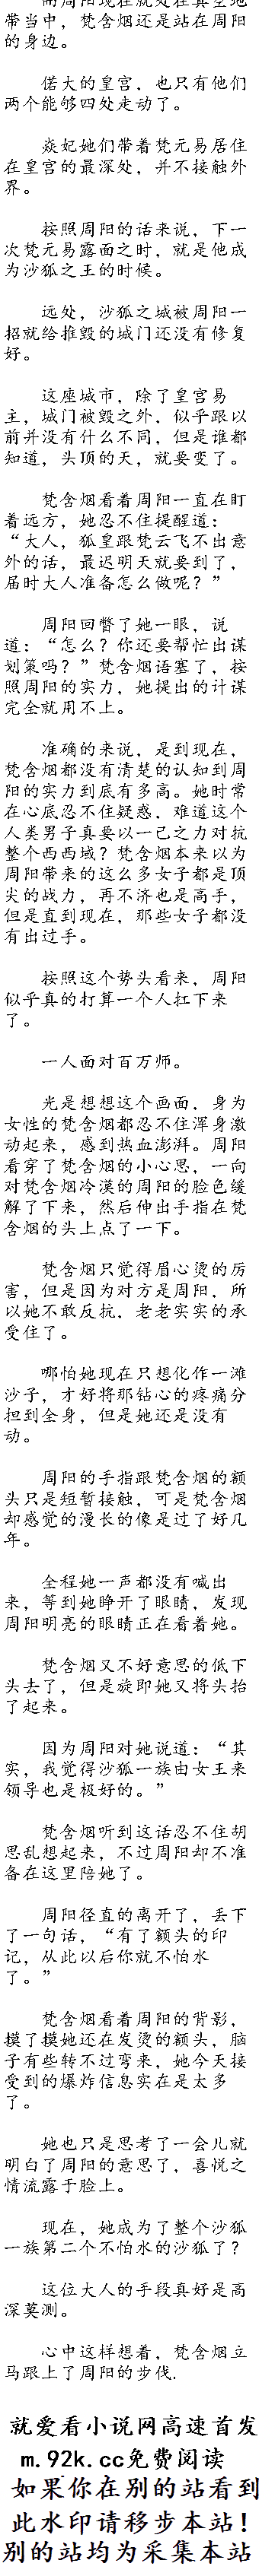 而周阳现在就处在真空地
带当中，梵含烟还是站在周阳
的身边。
偌大的皇宫，也只有他们
两个能够四处走动了。
焱妃她们带着梵元易居住
在皇宫的最深处，并不接触外
界。
按照周阳的话来说，下一
次梵元易露面之时，就是他成
为沙狐之王的时候。
远处，沙狐之城被周阳一
招就给摧毁的城门还没有修复
好。
这座城市，除了皇宫易
主，城门被毁之外，似乎跟以
前并没有什么不同，但是谁都
知道，头顶的天，就要变了。
梵含烟看着周阳一直在盯
着远方，她忍不住提醒道：
“大人，狐皇跟梵云飞不出意
外的话，最迟明天就要到了，
届时大人准备怎么做呢？”
周阳回瞥了她一眼，说
道：“怎么？你还要帮忙出谋
划策吗？”梵含烟语塞了，按
照周阳的实力，她提出的计谋
完全就用不上。
准确的来说，是到现在，
梵含烟都没有清楚的认知到周
阳的实力到底有多高。她时常
在心底忍不住疑惑，难道这个
人类男子真要以一己之力对抗
整个西西域？梵含烟本来以为
周阳带来的这么多女子都是顶
尖的战力，再不济也是高手，
但是直到现在，那些女子都没
有出过手。
按照这个势头看来，周阳
似乎真的打算一个人扛下来
了。
一人面对百万师。
光是想想这个画面，身为
女性的梵含烟都忍不住浑身激
动起来，感到热血澎湃。周阳
看穿了梵含烟的小心思，一向
对梵含烟冷漠的周阳的脸色缓
解了下来，然后伸出手指在梵
含烟的头上点了一下。
梵含烟只觉得眉心烫的厉
害，但是因为对方是周阳，所
以她不敢反抗，老老实实的承
受住了。
哪怕她现在只想化作一滩
沙子，才好将那钻心的疼痛分
担到全身，但是她还是没有
动。
周阳的手指跟梵含烟的额
头只是短暂接触，可是梵含烟
却感觉的漫长的像是过了好几
年。
全程她一声都没有喊出
来，等到她睁开了眼睛，发现
周阳明亮的眼睛正在看着她。
梵含烟又不好意思的低下
头去了，但是旋即她又将头抬
了起来。
因为周阳对她说道：“其
实，我觉得沙狐一族由女王来
领导也是极好的。”
梵含烟听到这话忍不住胡
思乱想起来，不过周阳却不准
备在这里陪她了。
周阳径直的离开了，丢下
了一句话，“有了额头的印
记，从此以后你就不怕水
了。”
梵含烟看着周阳的背影，
摸了摸她还在发烫的额头，脑
子有些转不过弯来，她今天接
受到的爆炸信息实在是太多
了。
她也只是思考了一会儿就
明白了周阳的意思了，喜悦之
情流露于脸上。
现在，她成为了整个沙狐
一族第二个不怕水的沙狐了？
这位大人的手段真好是高
深莫测。
心中这样想着，梵含烟立
马跟上了周阳的步伐.
就爱看小说网高速首发
m.92k.cc免费阅读
如果你在别的站看到
此水印请移步本站！
别的站均为采集本站